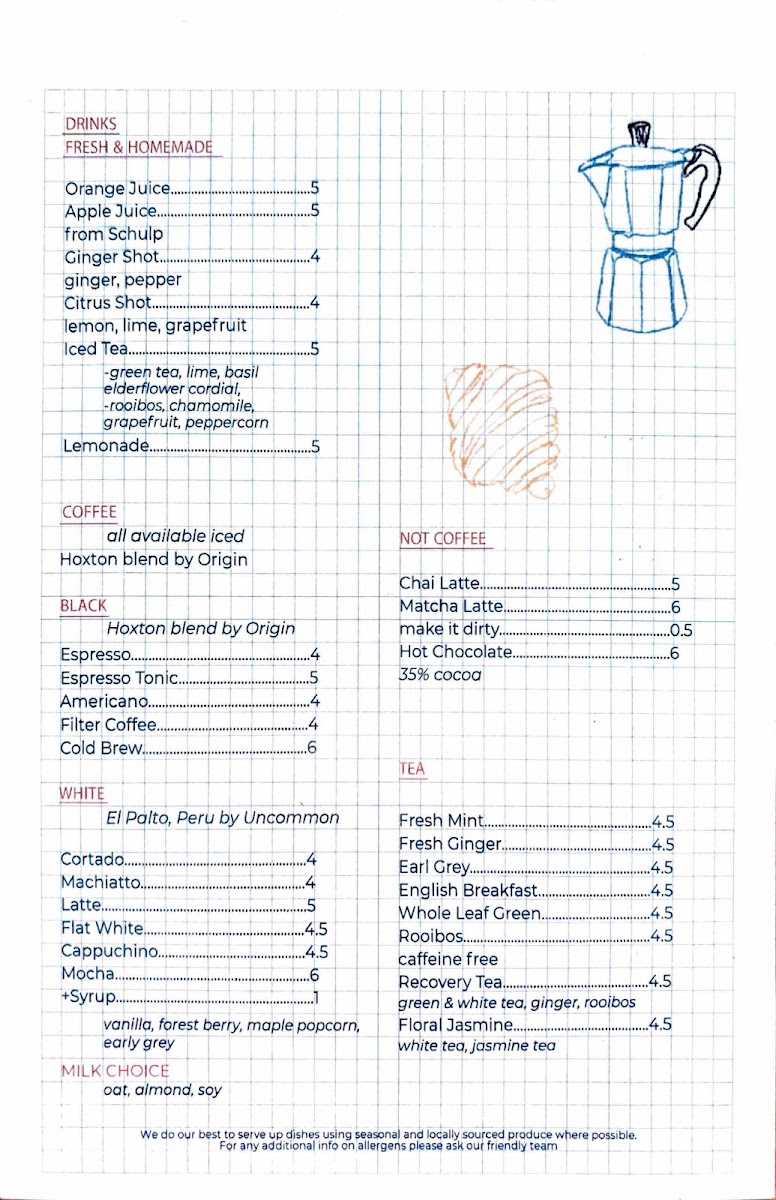 DRINKS
FRESH & HOMEMADE
Orange Juice.....5
Apple Juice.....5
from Schulp
Ginger Shot.....4
ginger, pepper
Citrus Shot.....4
lemon, lime, grapefruit
Iced Tea.....5
-green tea, lime, basil
elderflower cordial,
-rooibos, chamomile,
grapefruit, peppercorn
Lemonade.....5
COFFEE
all available iced
Hoxton blend by Origin
BLACK
Hoxton blend by Origin
Espresso.....4
Espresso Tonic.....5
Americano.....4
Filter Coffee.....4
Cold Brew.....6
WHITE
El Palto, Peru by Uncommon
Cortado.....4
Machiatto.....4
Latte.....5
Flat White.....4.5
Cappuchino.....4.5
Mocha.....6
+Syrup.....1
vanilla, forest berry, maple popcorn,
early grey
MILK CHOICE
oat, almond, soy
NOT COFFEE
Chai Latte.....5
Matcha Latte.....6
make it dirty.....0.5
Hot Chocolate.....6
35% cocoa
TEA
Fresh Mint.....4.5
Fresh Ginger.....4.5
Earl Grey.....4.5
English Breakfast.....4.5
Whole Leaf Green.....4.5
Rooibos.....4.5
caffeine free
Recovery Tea.....4.5
green & white tea, ginger, rooibos
Floral Jasmine.....4.5
white tea, jasmine tea
We do our best to serve up dishes using seasonal and locally sourced produce where possible.
For any additional info on allergens please ask our friendly team